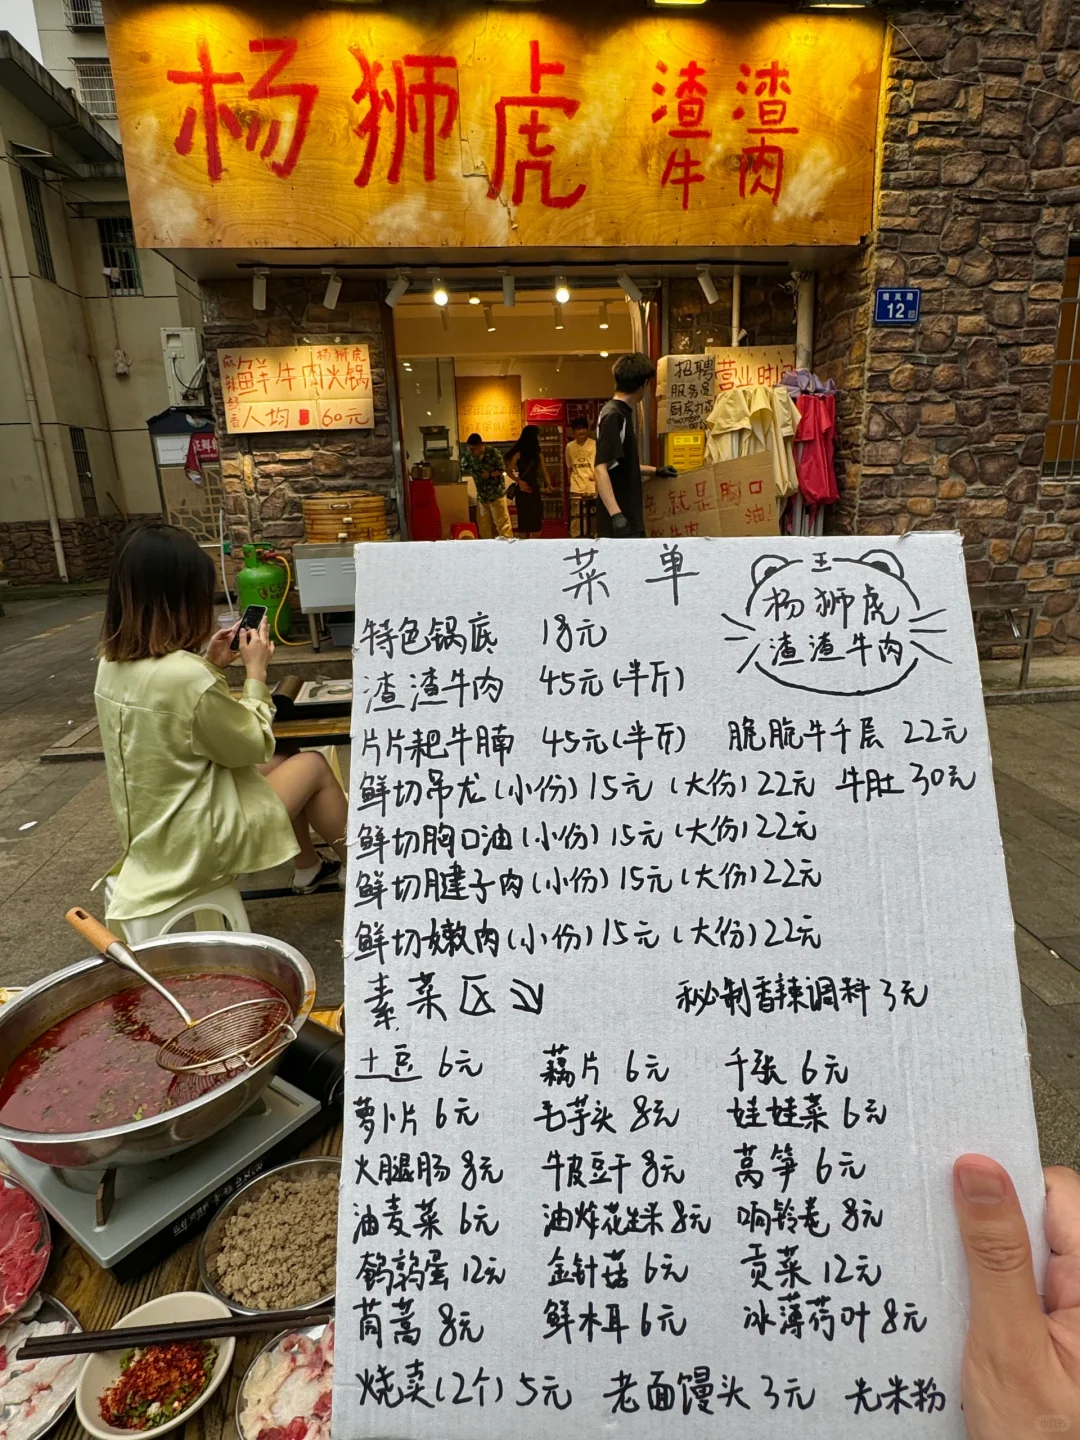 杨狮虎 渣渣牛肉
12
麻辣鲜香 鲜牛肉火锅 杨狮虎
人均 60元
招聘
服务员
营业时间
就是胸口
油!
菜单
王
杨狮虎
渣渣牛肉
特色锅底 18元
渣渣牛肉 45元(半斤)
片片耙牛腩 45元(半斤) 脆脆牛千层 22元
鲜切吊龙(小份)15元(大份)22元 牛肚 30元
鲜切胸口油(小份)15元(大份)22元
鲜切腱子肉(小份)15元(大份)22元
鲜切嫩肉(小份)15元(大份)22元
素菜区 秘制香辣调料 3元
土豆 6元 藕片 6元 千张 6元
萝卜片 6元 毛芋头 8元 娃娃菜 6元
火腿肠 8元 牛皮豆干 8元 莴笋 6元
油麦菜 6元 油炸花生米 8元 响铃卷 8元
鹌鹑蛋 12元 金针菇 6元 贡菜 12元
茼蒿 8元 鲜木耳 6元 冰薄荷叶 8元
烧卖(2个)5元 老面馒头 3元 先米粉